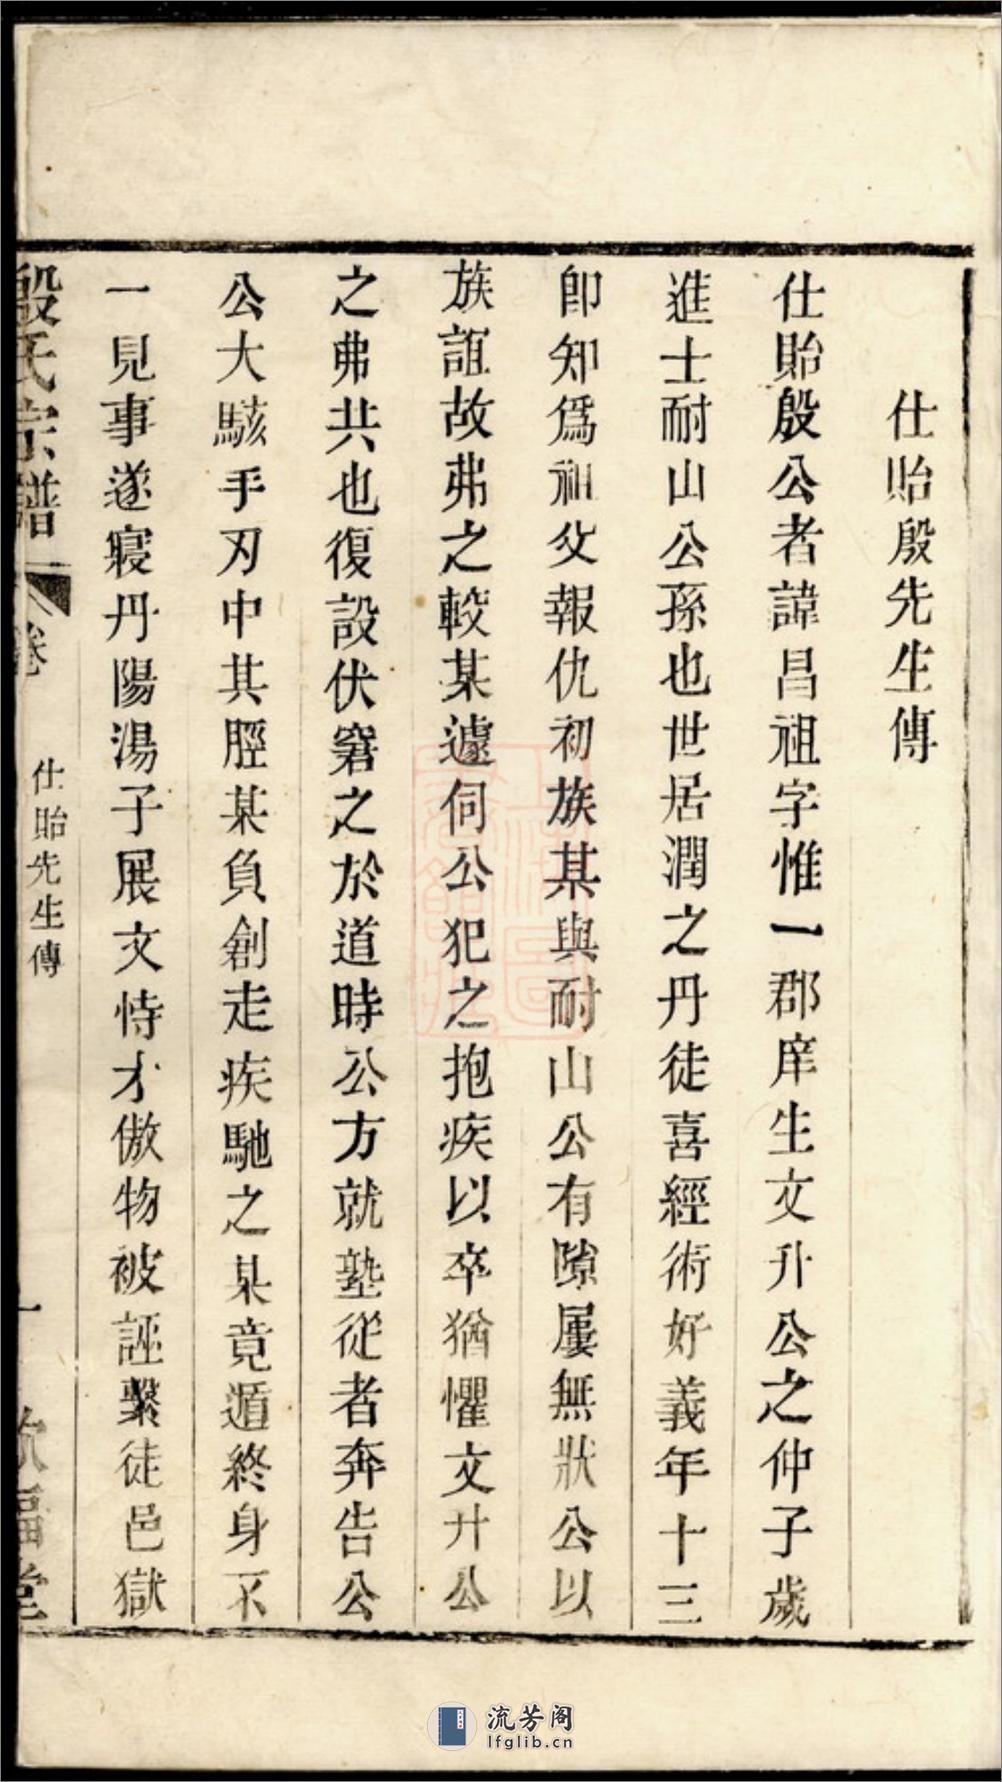 仕貽殷先生傳
仕貽殷公者諱昌祖字惟一郡庠生文升公之仲子歲
進士耐山公孫也世居潤之丹徒喜經術好義年十三
卽知爲祖父報仇初族某與耐山公有隙屢無狀公以
族誼故弗之較某遽伺公犯之抱疾以卒猶懼文升公
之弗共也復設伏窘之於道時公方就塾從者奔告公
公大駭手刃中其脛某負創走疾馳之某竟遁終身不
一見事遂寢丹陽湯子展文恃才傲物被誣繫徒邑獄
殷氏宗譜
卷
仕貽先生傳
一
福堂
流芳阁
lfglib.cn